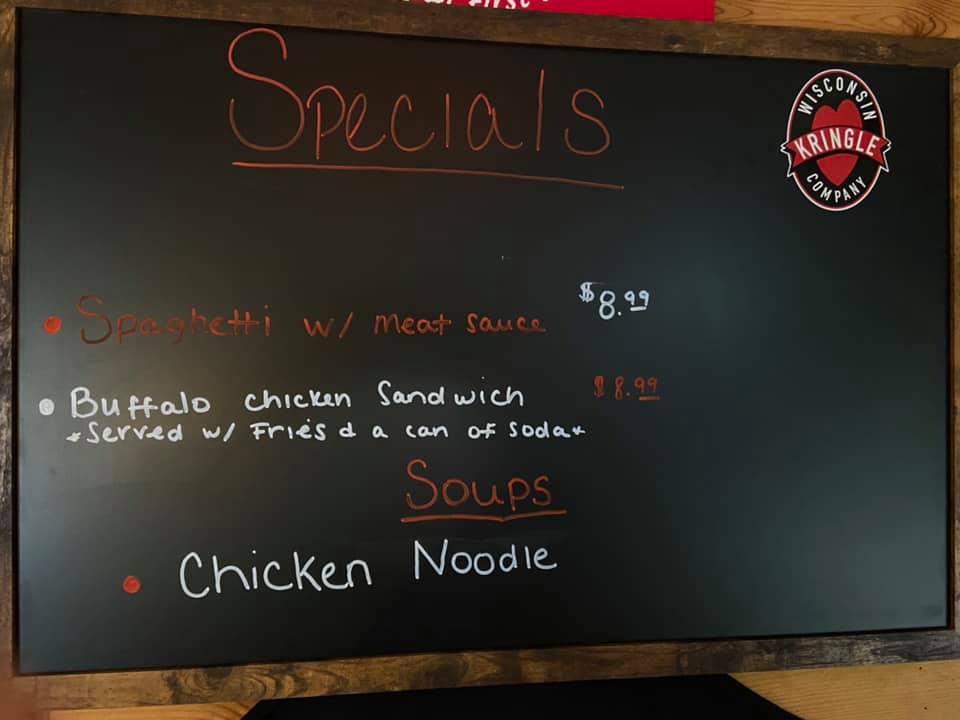 Specials
WISCONSIN
KRINGLE
COMPANY
• Spaghetti w/ meat sauce $8.99
• Buffalo chicken Sandwich $8.99
*Served w/ Fries & a can of soda*
Soups
• Chicken Noodle